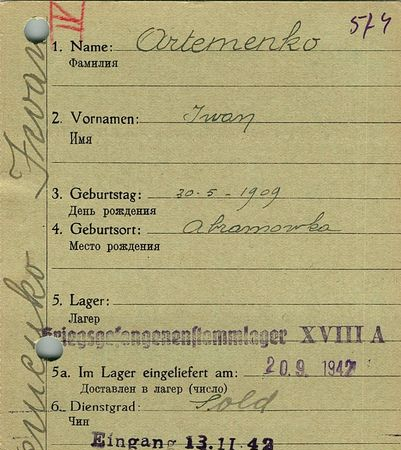 IV
574
1. Name: Artemenko
Фамилия
2. Vornamen: Iwan
Имя
3. Geburtstag: 30.5-1909
День рождения
4. Geburtsort: Abramowka
Место рождения
5. Lager:
Лагер
Kriegsgefangenenstammlager XVIII A
5a. Im Lager eingeliefert am: 20.9.1942
Доставлен в лагер (число)
6. Dienstgrad: Sold
Чин
Eingang 13.11.42
Iwan